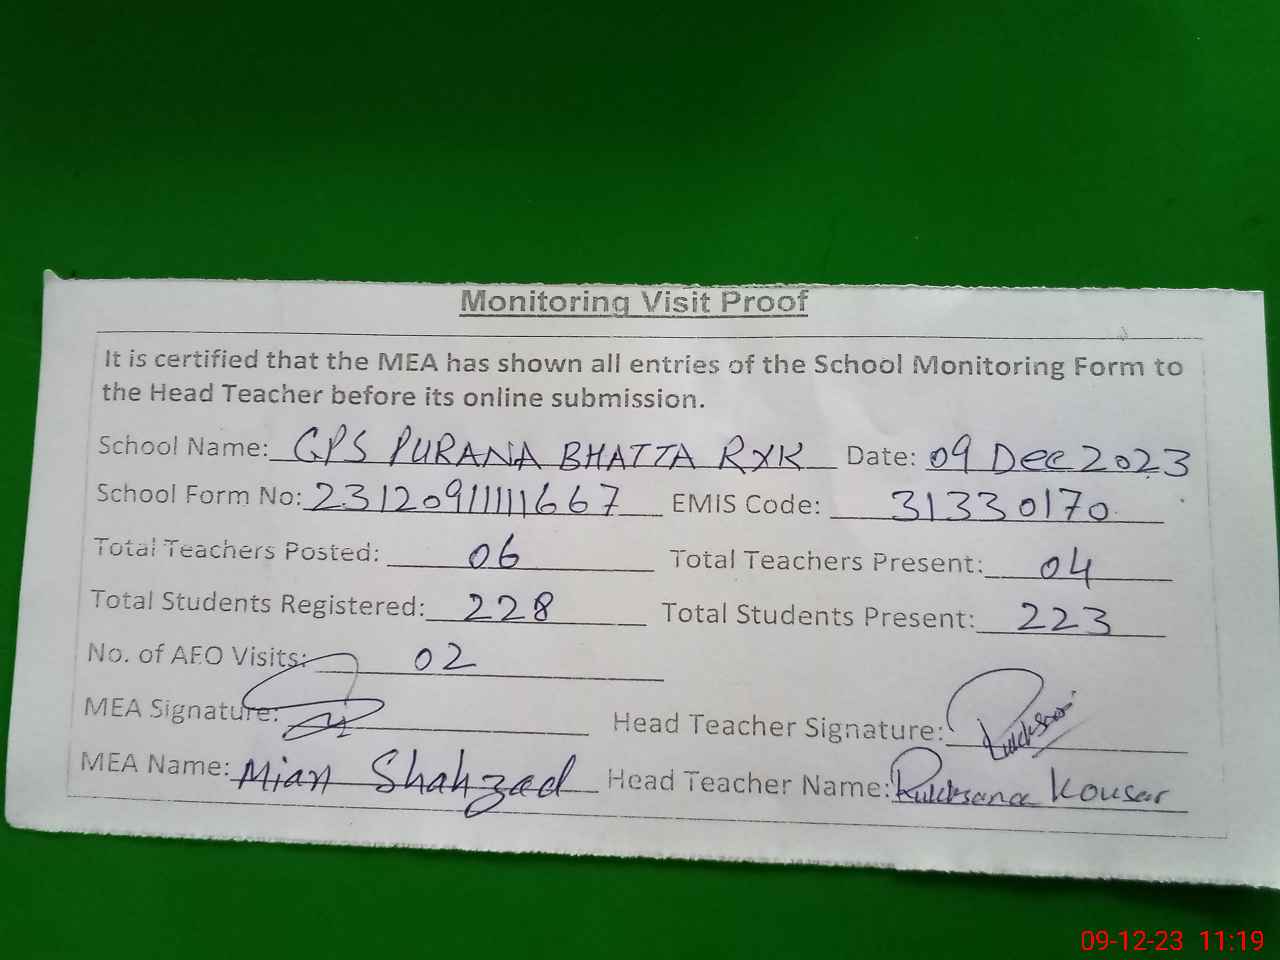 Monitoring Visit Proof
It is certified that the MEA has shown all entries of the School Monitoring Form to
the Head Teacher before its online submission.
School Name: GPS PURANA BHATTA RYK Date: 09 Dec 2023
School Form No: 2312091111667 EMIS Code: 31330170
Total Teachers Posted: 06 Total Teachers Present: 04
Total Students Registered: 228 Total Students Present: 223
No. of AEO Visits: 02
MEA Signature: Head Teacher Signature:
MEA Name: Mian Shahzad Head Teacher Name: Rukhsana Kousar
09-12-23 11:19